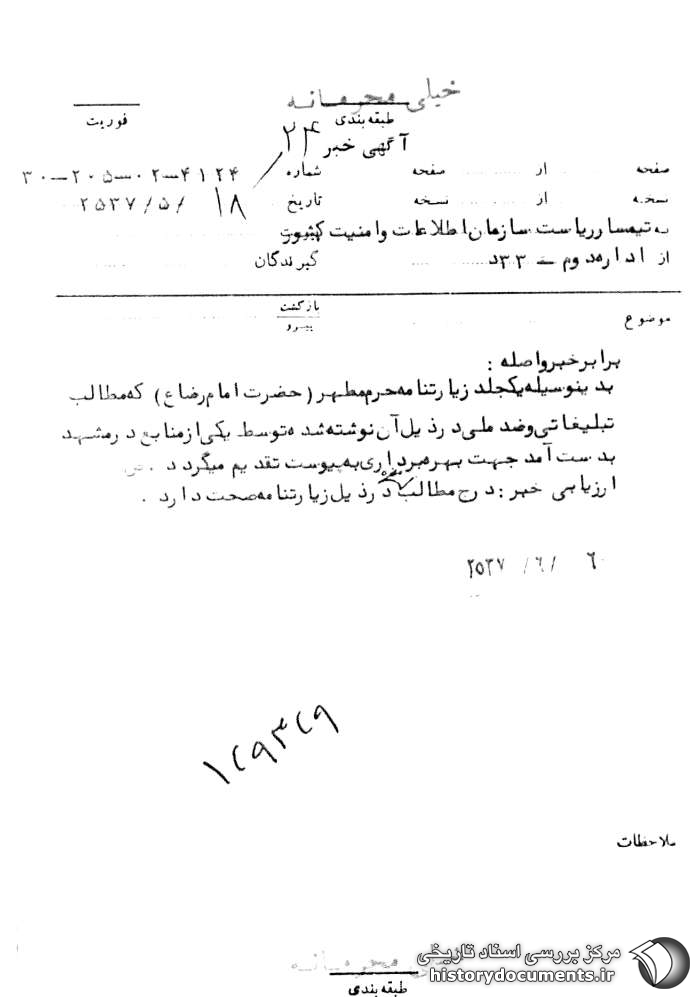 خیلی محرمانه
طبقه بندی
فوریت
آگهی خبر
۲۴
صفحه از صفحه شماره ۳۰-۲۰۵-۰۲-۴۱۲۴
نسخه از نسخه تاریخ ۲۵۳۷/۵/۱۸
به تیمسار ریاست سازمان اطلاعات وامنیت کشور
از اداره دوم - ۳۳د گیرندگان
موضوع بازگشت
پیرو
برابر خبر واصله :
بدینوسیله یکجلد زیارتنامه حرم مطهر (حضرت امام رضا ع) که مطالب
تبلیغاتی و ضد ملی در ذیل آن نوشته شده توسط یکی از منابع در مشهد
بدست آمد جهت بهره برداری به پیوست تقدیم میگردد .
ارزیابی خبر : درج مطالب در ذیل زیارتنامه صحت دارد .
۲۵۳۷ /۶/ ۶
ملاحظات
محرمانه
طبقه بندی
مرکز بررسی اسناد تاریخی
historydocuments.ir